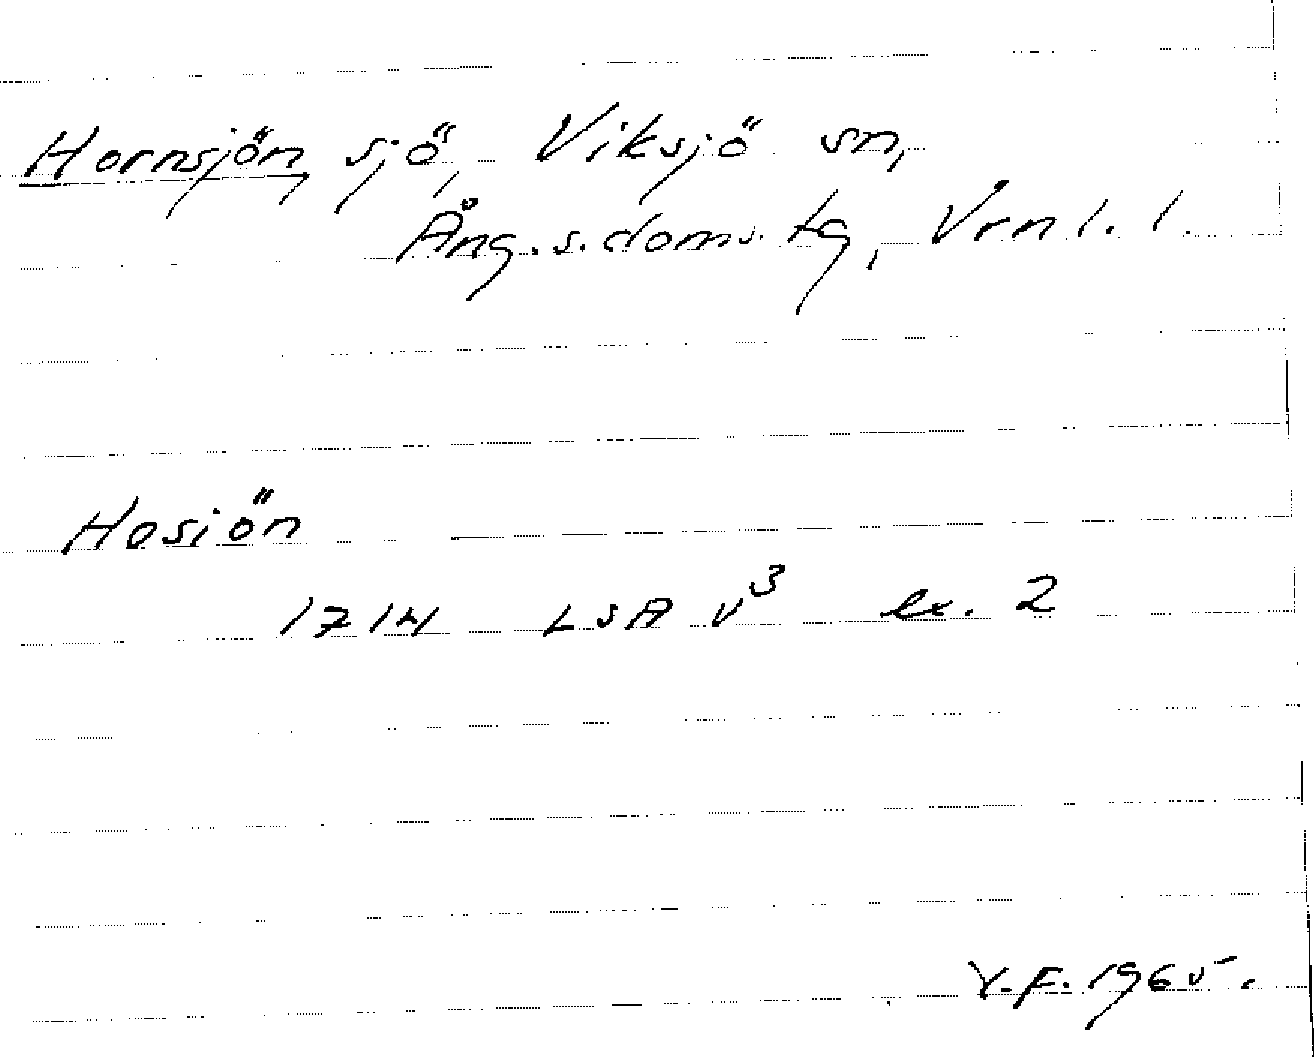 Hornsjön, sjö, Viksjö sn,
Ång. s. doms. tg, Vrnl. l.
Hosiön
1714 LSA V³ ex. 2
Y.F. 1965.